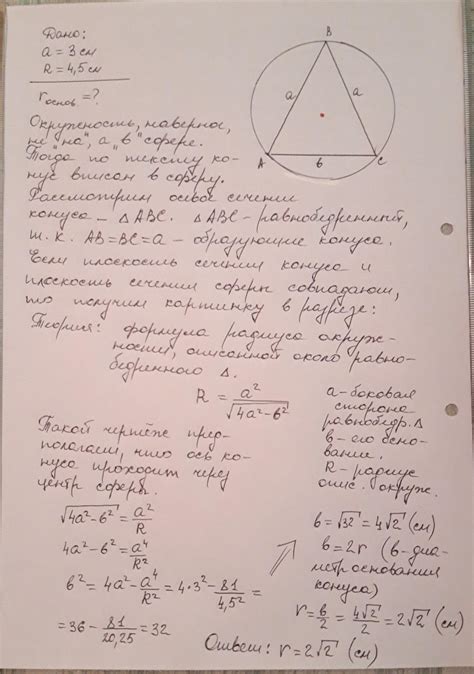 Дано:
a = 3 см
R = 4,5 см
r основ = ?
B
a
a
A
б
C
Окружность, наверное,
не "на", а "в" сфере.
Тогда по тексту ко-
нус вписан в сферу.
Рассмотрим осевое сечение
конуса – ΔABC. ΔABC – равнобедренный,
т.к. AB=BC=a – образующие конуса.
Если плоскость сечения конуса и
плоскость сечения сферы совпадают,
то получим картинку в разрезе:
Теория: формула радиуса окруж-
ности, описанной около равно-
бедренного Δ.
R = a²/√(4a²-б²)
a - боковая
сторона
равнобедр. Δ
б - его осно-
вание.
R - радиус
опис. окруж.
Такой чертёж пред-
полагаем, что ось ко-
нуса проходит через
центр сферы.
√(4a²-б²) = a²/R
4a²-б² = a⁴/R²
б² = 4a² - a⁴/R² = 4·3² - 81/4,5² =
= 36 - 81/20,25 = 32
б = √32 = 4√2 (см)
б = 2r (б - диа-
метр основания
конуса)
r = б/2 = 4√2/2 = 2√2 (см)
Ответ: r = 2√2 (см)